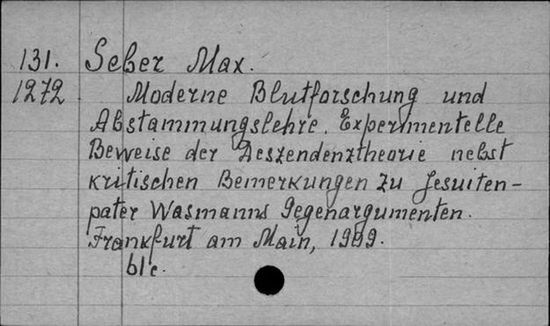 131. Seber Max.
1272 Moderne Blutforschung und
Abstammungslehre. Experimentelle
Beweise der Deszendenztheorie nebst
kritischen Bemerkungen zu Jesuiten-
pater Wasmanns Gegenargumenten.
Frankfurt am Main, 1909.